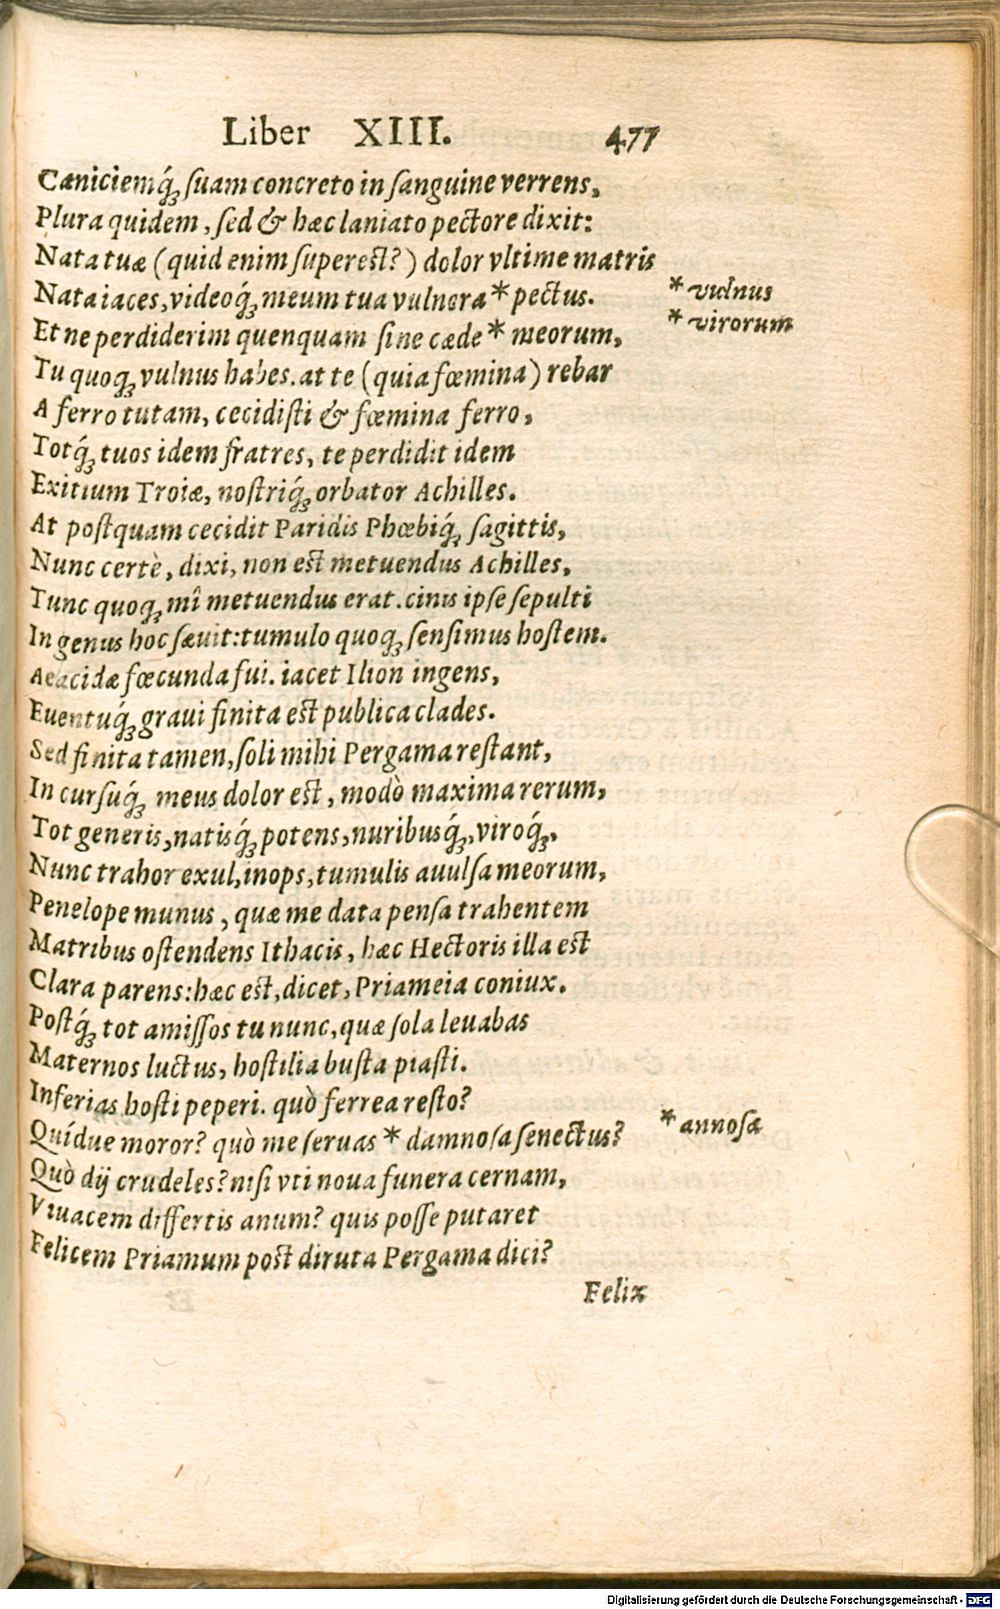 Liber XIII. 477
Caniciemq́ꝫ ſuam concreto in ſanguine verrens,
Plura quidem, ſed & hæc laniato pectore dixit:
Nata tuæ (quid enim ſupereſt?) dolor vltime matris
Nata iaces, videoq́ꝫ meum tua vulnera * pectus. * vulnus
Et ne perdiderim quenquam ſine cæde * meorum, * virorum
Tu quoqꝫ vulnus habes. at te (quia fœmina) rebar
A ferro tutam, cecidiſti & fœmina ferro,
Totq́ꝫ tuos idem fratres, te perdidit idem
Exitium Troiæ, noſtriq́ꝫ orbator Achilles.
At poſtquam cecidit Paridis Phœbiq́ꝫ ſagittis,
Nunc certè, dixi, non eſt metuendus Achilles,
Tunc quoqꝫ mî metuendus erat. cinis ipſe ſepulti
In genus hoc ſæuit: tumulo quoqꝫ ſenſimus hoſtem.
Aeacidæ fœcunda fui. iacet Ilion ingens,
Euentuq́ꝫ graui finita eſt publica clades.
Sed finita tamen, ſoli mihi Pergama reſtant,
In curſuq́ꝫ meus dolor eſt, modò maxima rerum,
Tot generis, natisq́ꝫ potens, nuribusq́ꝫ, viroq́ꝫ,
Nunc trahor exul, inops, tumulis auulſa meorum,
Penelope munus, quæ me data penſa trahentem
Matribus oſtendens Ithacis, hæc Hectoris illa eſt
Clara parens: hæc eſt, dicet, Priameia coniux.
Poſtq́ꝫ tot amiſſos tu nunc, quæ ſola leuabas
Maternos luctus, hoſtilia buſta piaſti.
Inferias hoſti peperi. quò ferrea reſto?
Quídue moror? quò me ſeruas * damnoſa ſenectus? * annoſa
Quò dij crudeles? niſi vti noua funera cernam,
Viuacem differtis anum? quis poſſe putaret
Felicem Priamum poſt diruta Pergama dici?
Felix
Digitalisierung gefördert durch die Deutsche Forschungsgemeinschaft - DFG